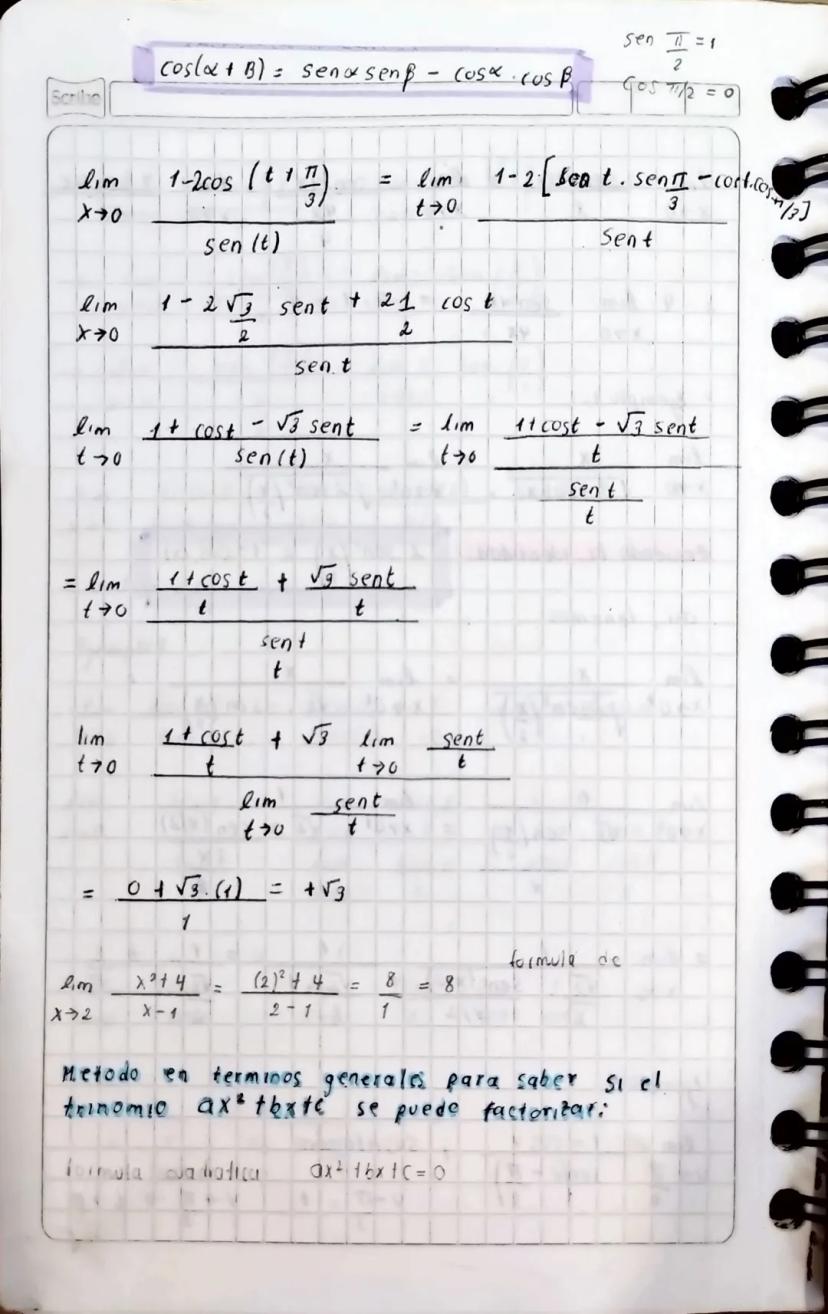 sen π/2 = 1
cos(α + β) = senα senβ - cosα . cos β
Cos π/2 = 0
Scribe
lim x→0 1-2cos (t + π/3) / sen(t) = lim t→0 1-2[sen t . sen π/3 - cost.cos π/3] / sent
lim x→0 1 - 2 √3/2 sent + 2 1/2 cos t / sen t
lim t→0 1 + cost - √3 sent / sen(t) = lim t→0 1+cost - √3 sent / t / sent / t
= lim t→0 1+cost / t + √3 sent / t / sent / t
lim t→0 1+cost / t + √3 lim t→0 sent / t / lim t→0 sent / t
= 0 + √3.(1) / 1 = +√3
formula de
lim x→2 x²+4 / x-1 = (2)²+4 / 2-1 = 8/1 = 8
Metodo en terminos generales para saber si el
trinomio ax²+bx+c se puede factorizar:
formula cuadratica ax²+bx+c=0